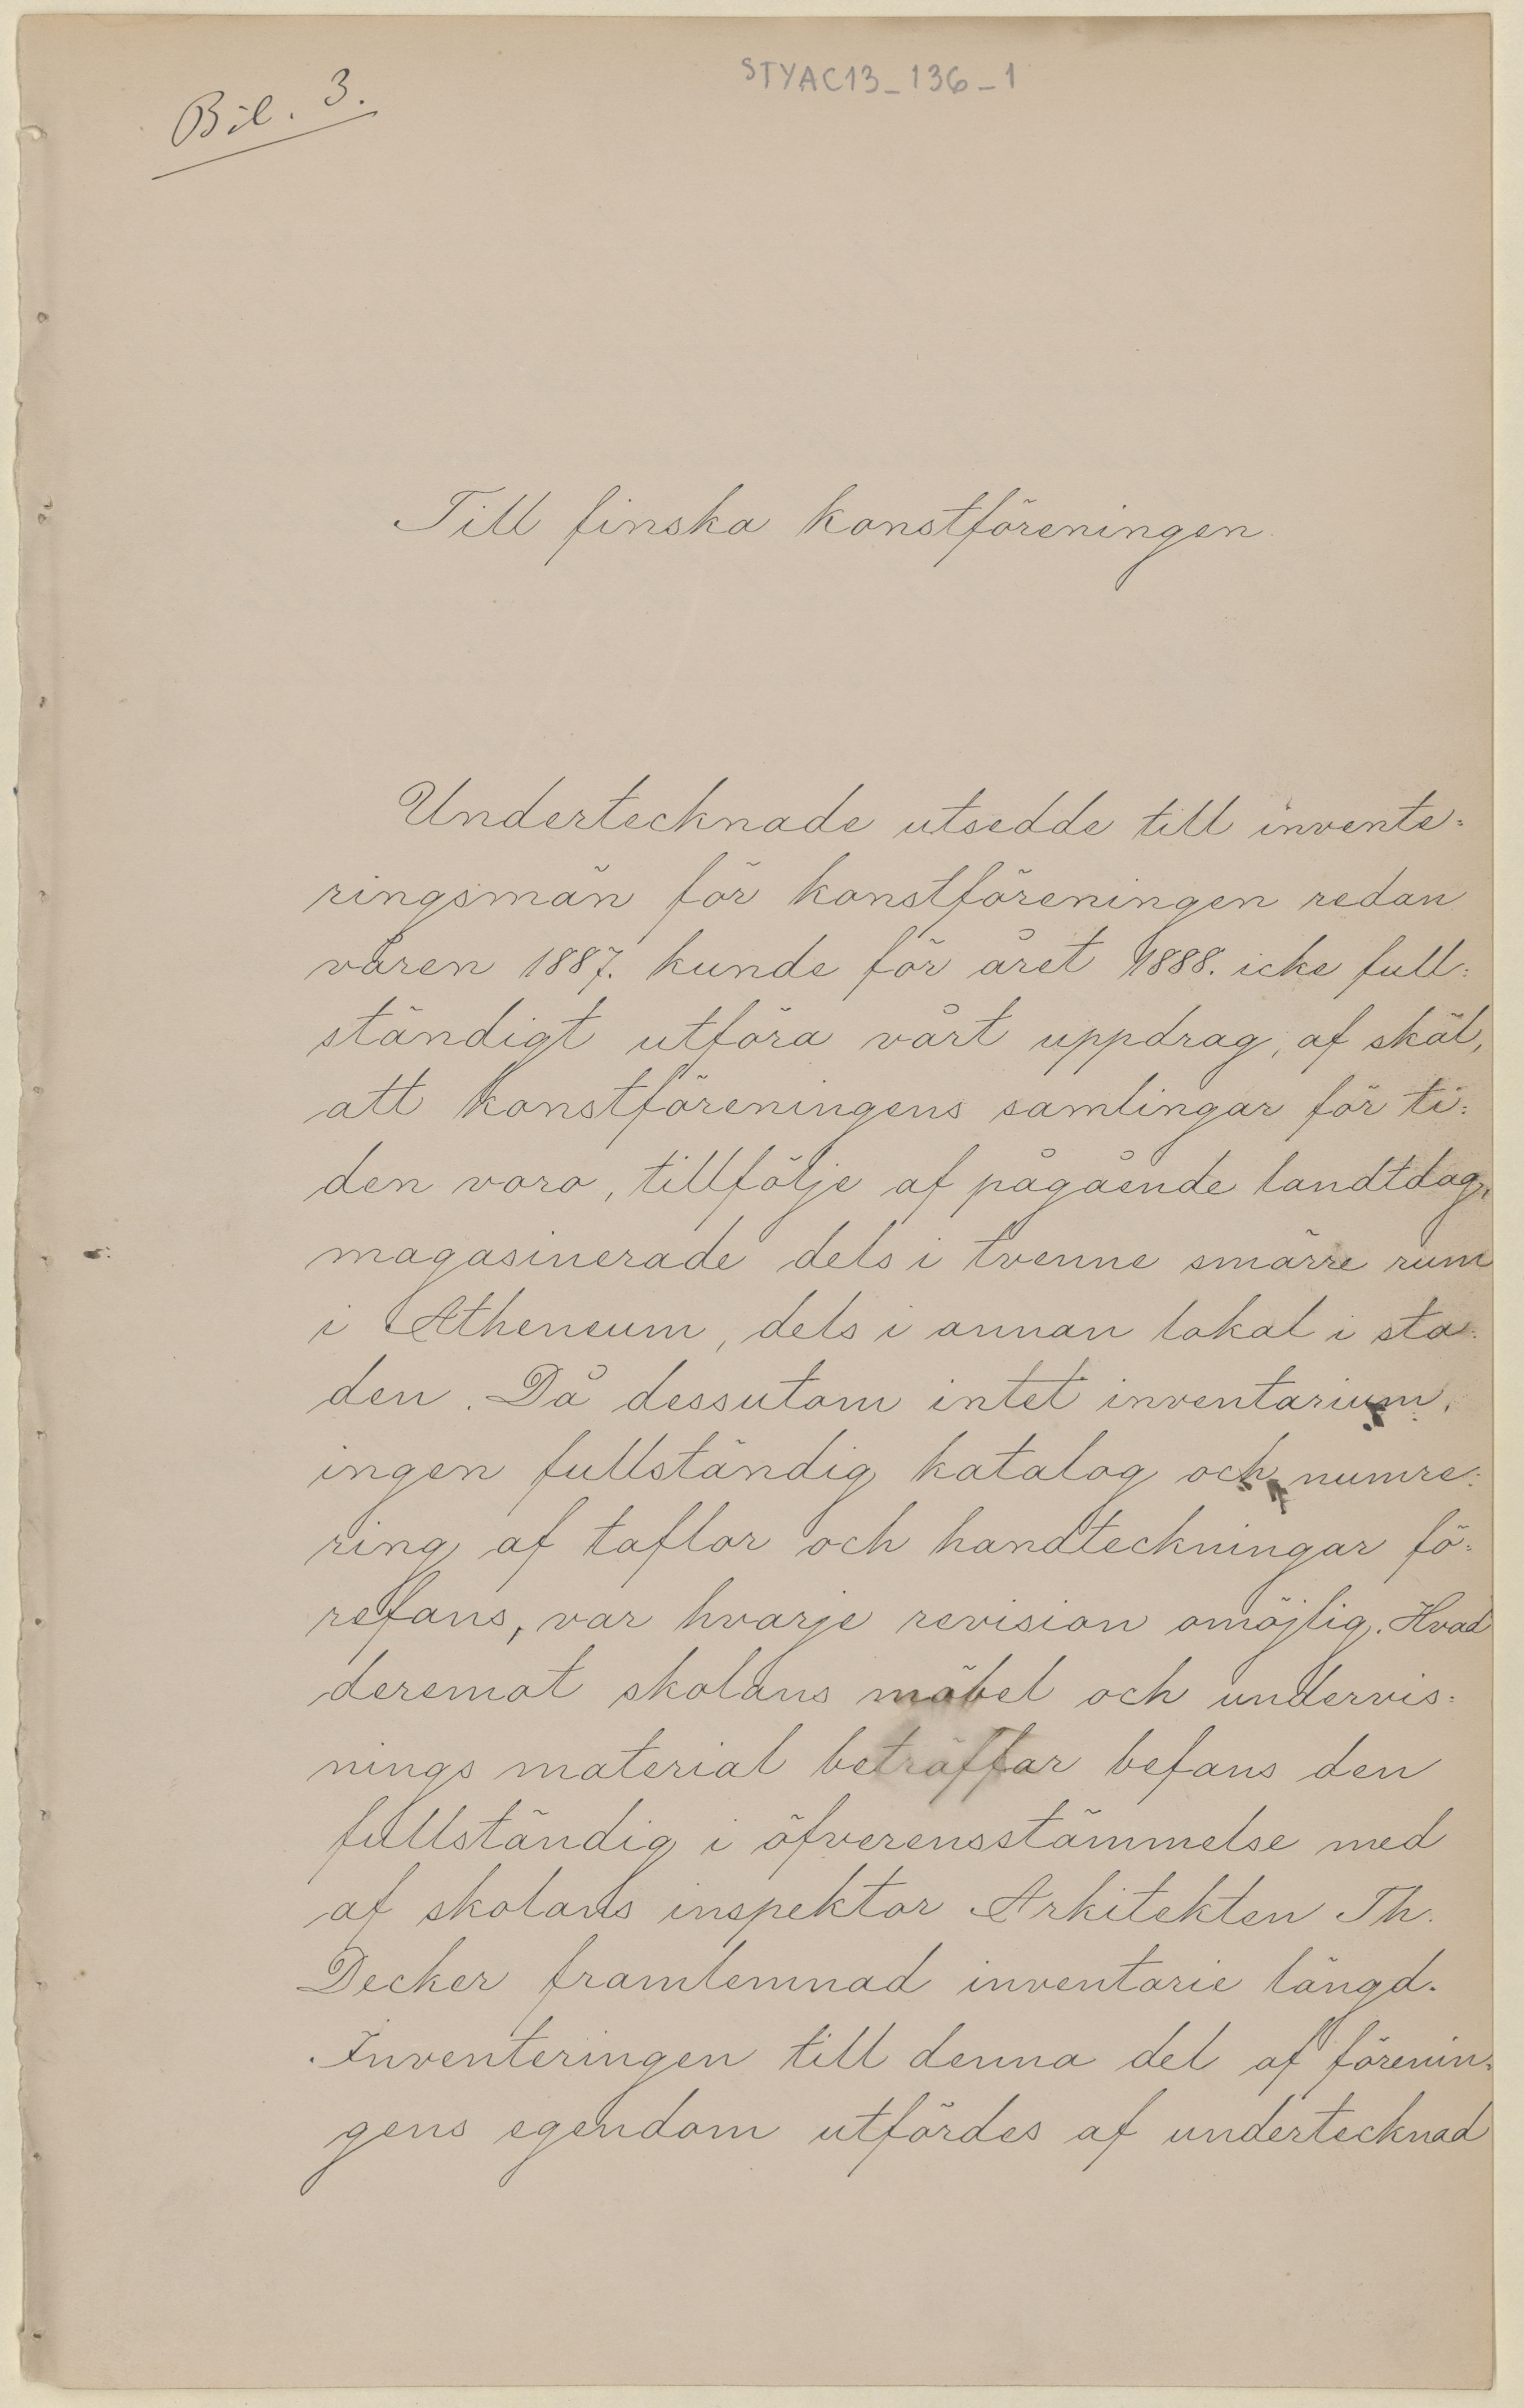 STYAC13_136_1
Bil. 3.
Till finska konstföreningen
Undertecknade utsedde till invente=
ringsmän för konstföreningen redan
våren 1887. kunde för året 1888. icke full=
ständigt utföra vårt uppdrag, af skäl,
att konstföreningens samlingar för ti=
den voro, tillfölje af pågående landtdag,
magasinerade dels i tvenne smärre rum
i Atheneum, dels i annan lokal i sta=
den. Då dessutom intet inventarium,
ingen fullständig katalog och numre=
ring af taflor och handteckningar fö=
refans, var hvarje revision omöjlig. Hvad
deremot skolans möbel och undervis=
nings material beträffar befans den
fullständig i öfverensstämmelse med
af skolans inspektor Arkitekten Th.
Decker framlemnad inventarie längd.
Inventeringen till denna del af förenin=
gens egendom utfördes af undertecknad